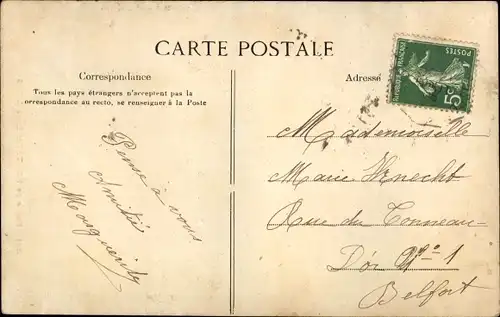 CARTE POSTALE
Correspondance
Tous les pays étrangers n'acceptent pas la
correspondance au recto, se renseigner à la Poste
Pense à vous
Amitié
Adresse
POSTES
5
Mademoiselle
Marie
Rue du Tonneau-
D'or No 1
Belfort